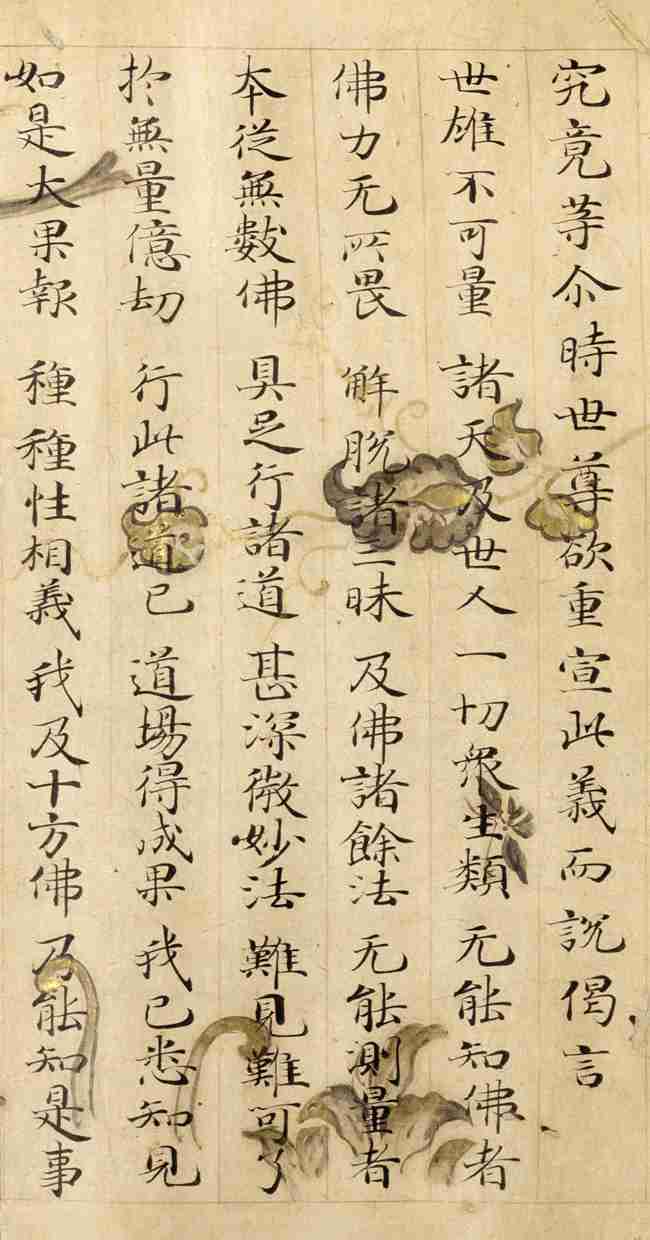 究竟等尒時世尊欲重宣此義而說偈言
世雄不可量　諸天及世人　一切衆生類　无能知佛者
佛力无所畏　解脫諸三昧　及佛諸餘法　无能測量者
本從無數佛　具足行諸道　甚深微妙法　難見難可了
於無量億劫　行此諸道已　道場得成果　我已悉知見
如是大果報　種種性相義　我及十方佛　乃能知是事